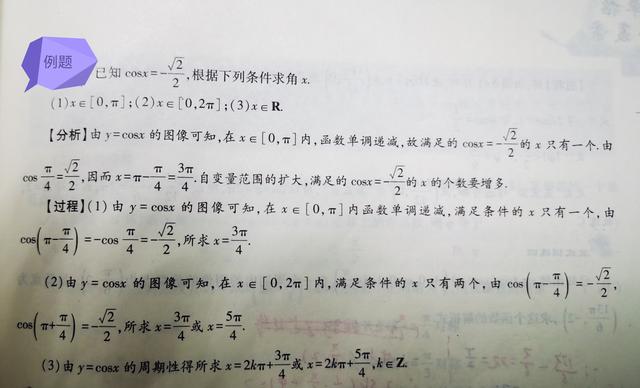 例题
已知 cosx=-√2/2,根据下列条件求角 x.
(1)x∈[0,π];(2)x∈[0,2π];(3)x∈R.
【分析】由 y=cosx 的图像可知,在 x∈[0,π]内,函数单调递减,故满足的 cosx=-√2/2的 x 只有一个.由
cos π/4=√2/2,因而 x=π-π/4=3π/4.自变量范围的扩大,满足的cosx=-√2/2的 x 的个数要增多.
【过程】(1)由 y=cosx 的图像可知,在 x∈[0,π]内函数单调递减,满足条件的 x 只有一个,由
cos(π-π/4)=-cos π/4=-√2/2,所求 x=3π/4.
(2)由 y=cosx 的图像可知,在 x∈[0,2π]内,满足条件的 x 只有两个,由 cos(π-π/4)=-√2/2,
cos(π+π/4)=-√2/2,所求 x=3π/4或 x=5π/4.
(3)由 y=cosx 的周期性得所求 x=2kπ+3π/4或 x=2kπ+5π/4,k∈Z.